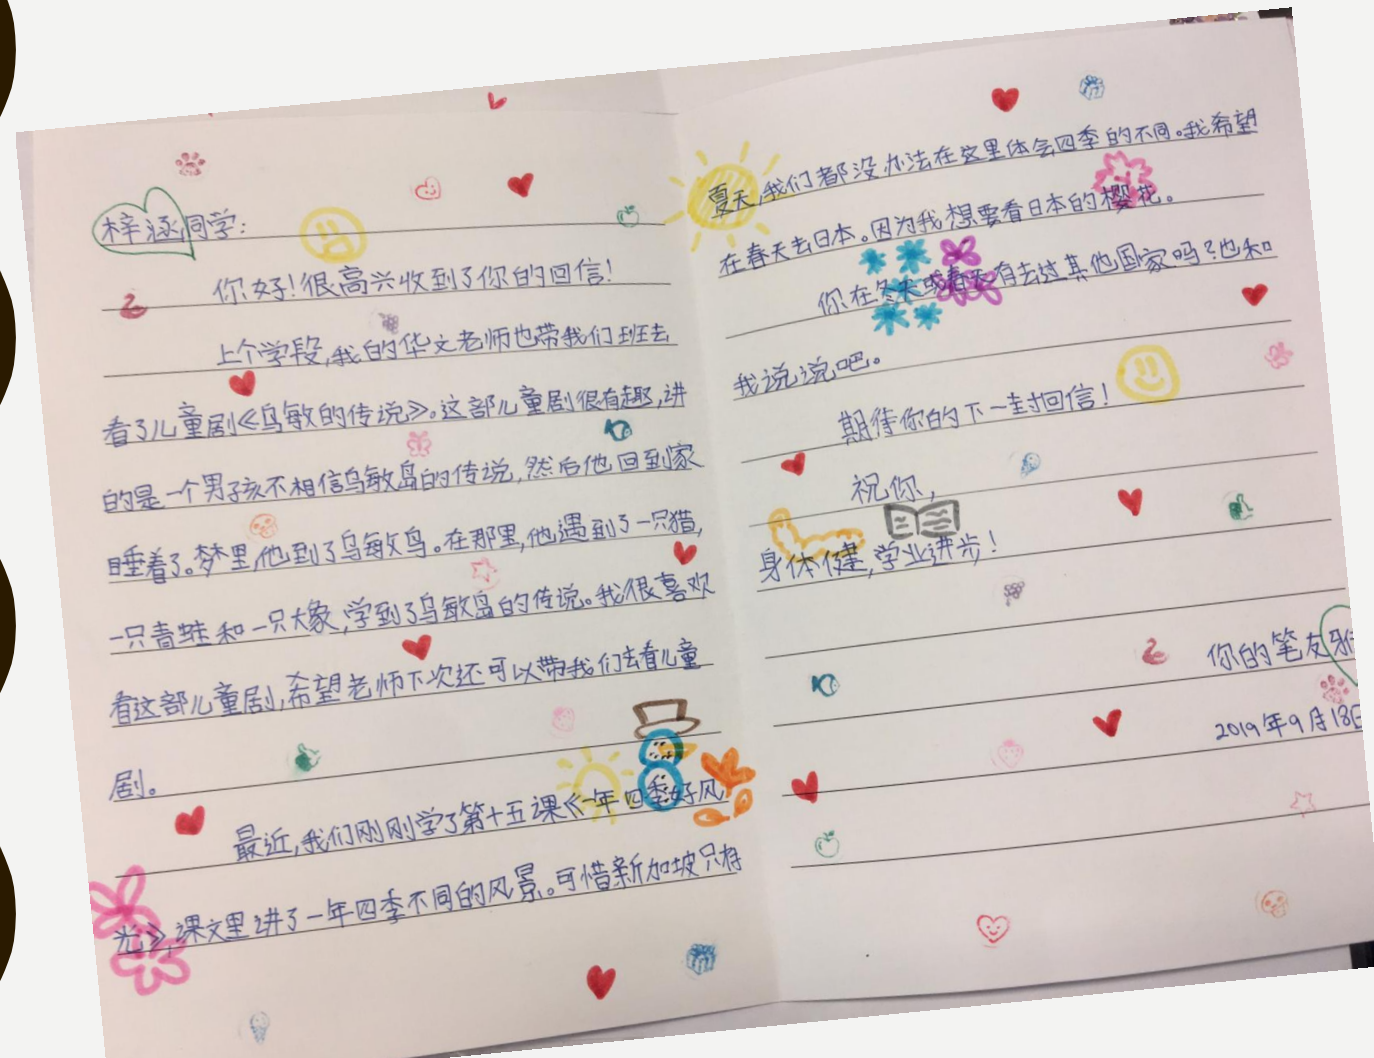 梓涵同学：
你好！很高兴收到了你的回信！
上个学段，我的华文老师也带我们班去
看了儿童剧《乌敏的传说》。这部儿童剧很有趣，讲
的是一个男孩不相信乌敏岛的传说，然后他回到家
睡着了。梦里，他到了乌敏岛。在那里，他遇到了一只猫，
一只青蛙和一只大象，学到了乌敏岛的传说。我很喜欢
看这部儿童剧，希望老师下次还可以带我们去看儿童
剧。
最近，我们刚刚学了第十五课《一年四季好风
光》，课文里讲了一年四季不同的风景。可惜新加坡只有
夏天，我们都没办法在这里体会四季的不同。我希望
在春天去日本。因为我想要看日本的樱花。
你在冬天或春天有去过其他国家吗？也和
我说说吧。
期待你的下一封回信！
祝你，
身体健，学业进步！
你的笔友
2019年9月18日